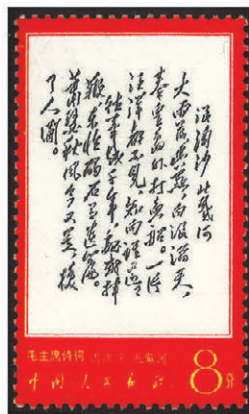 浪淘沙 北戴河
大雨落幽燕,白浪滔天,
秦皇岛外打鱼船。一片
汪洋都不见,知向谁边?
往事越千年,魏武挥
鞭,东临碣石有遗篇。
萧瑟秋风今又是,换
了人间。
毛主席诗词 浪淘沙 北戴河
中国人民邮政
8分